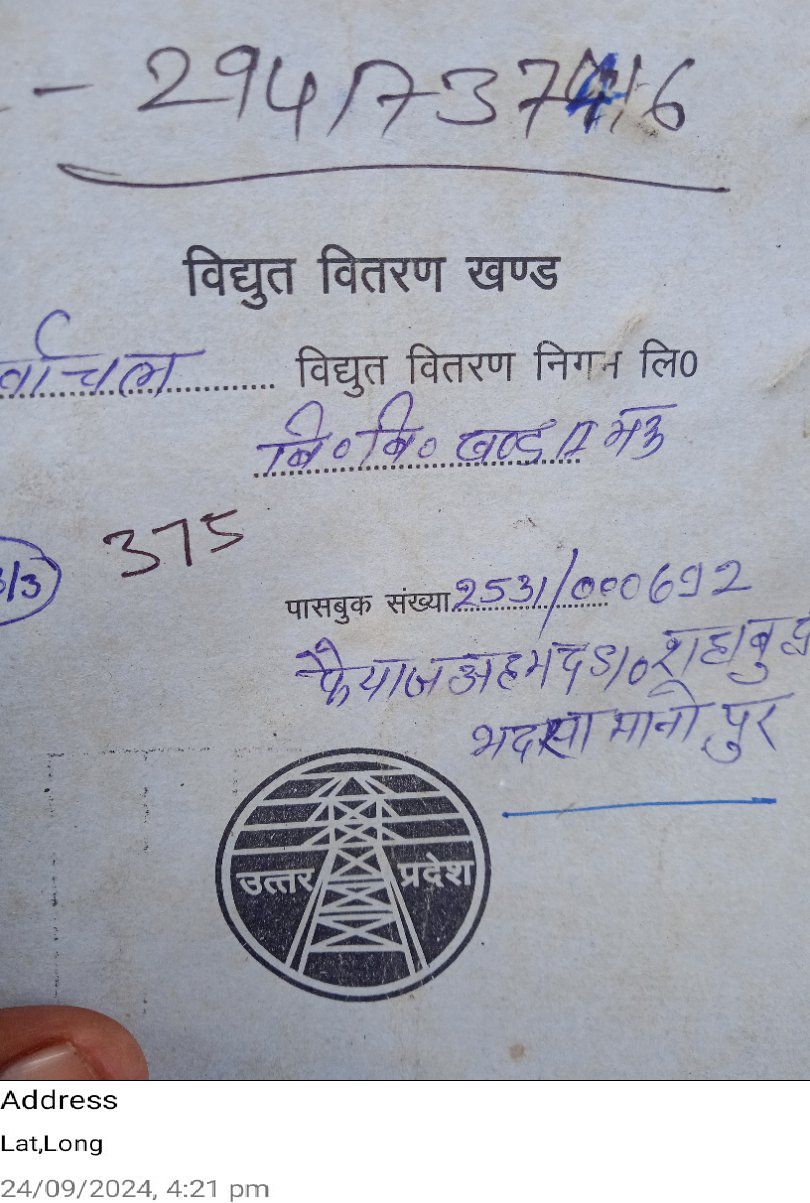 - 294173746
विद्युत वितरण खण्ड
र्वाचल विद्युत वितरण निगम लि0
वि० वि० खण्ड मऊ
375
/3
पासबुक संख्या 2531/000692
फैयाज अहमद S/० शहाबुद्
भदसा मानोपुर
उत्तर प्रदेश
Address
Lat,Long
24/09/2024, 4:21 pm